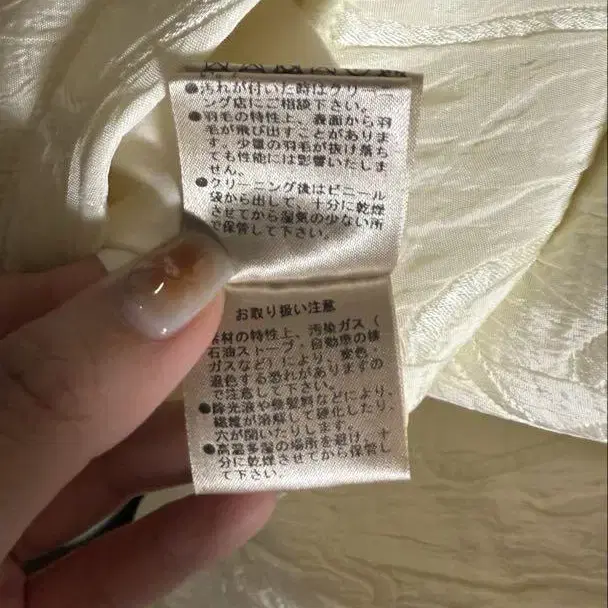 ●汚れが付いた時はクリーニ
ング店にご相談下さい。
●羽毛の特性上、表面から羽
毛が飛び出すことがありま
す。少量の羽毛が抜け落ち
ても性能には影響いたしま
せん。
●クリーニング後はビニール
袋から出して、十分に乾燥
させてから湿気の少ない所
で保管して下さい。
お取り扱い注意
素材の特性上、汚染ガス（
石油ストーブ、自動車の排
ガスなど）により、変色、
退色する恐れがありますの
で注意して下さい。
●除光液や接着剤などにより、
繊維が溶解して硬化したり、
穴が開いたりします。
●高温多湿の場所を避け、十
分に乾燥させてから保管し
て下さい。